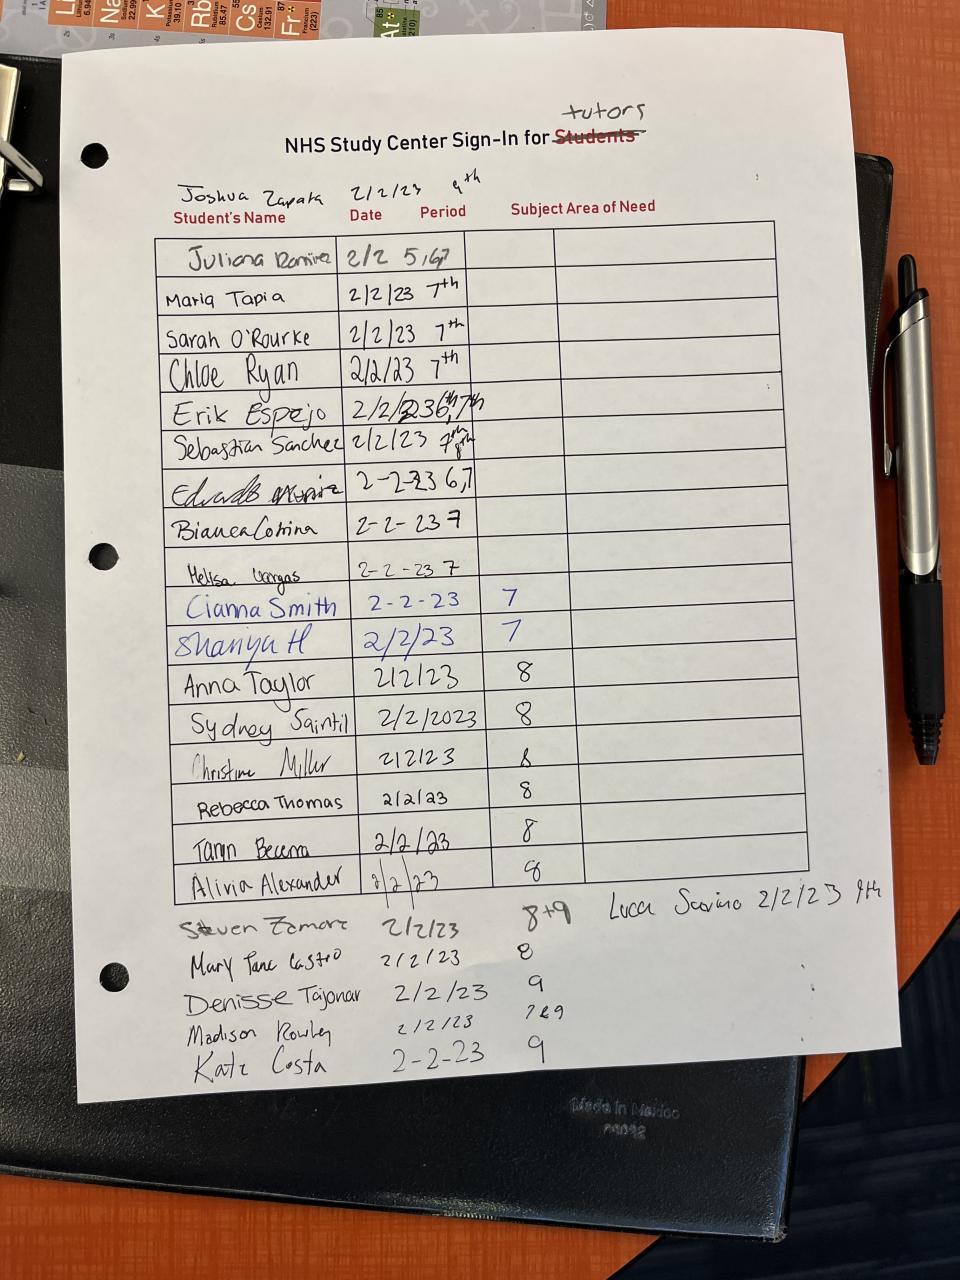 Li
Na
K
Rb
Cs
Fr
At
tutors
NHS Study Center Sign-In for Students
Joshua Zapata 2/2/23 9th
Student's Name Date Period Subject Area of Need
Juliana Ramirez 2/2 5,6,7
Maria Tapia 2/2/23 7th
Sarah O'Rourke 2/2/23 7th
Chloe Ryan 2/2/23 7th
Erik Espejo 2/2/23 6th,7th
Sebastian Sanchez 2/2/23 7th 8th
2-2-23 6,7
Bianca 2-2-23 7
Melisa Vargas 2-2-23 7
Cianna Smith 2-2-23 7
Shaniya H 2/2/23 7
Anna Taylor 2/2/23 8
Sydney Saintil 2/2/2023 8
Christine Miller 2/2/23 8
Rebecca Thomas 2/2/23 8
Taryn Becerra 2/2/23 8
Alivia Alexander 2/2/23 8
Steven 2/2/23 8+9
Luca 2/2/23 9th
Mary Jane Castro 2/2/23 8
Denisse Tajonar 2/2/23 9
Madison Rowley 2/2/23
Kate Costa 2-2-23 9
Made in Mexico